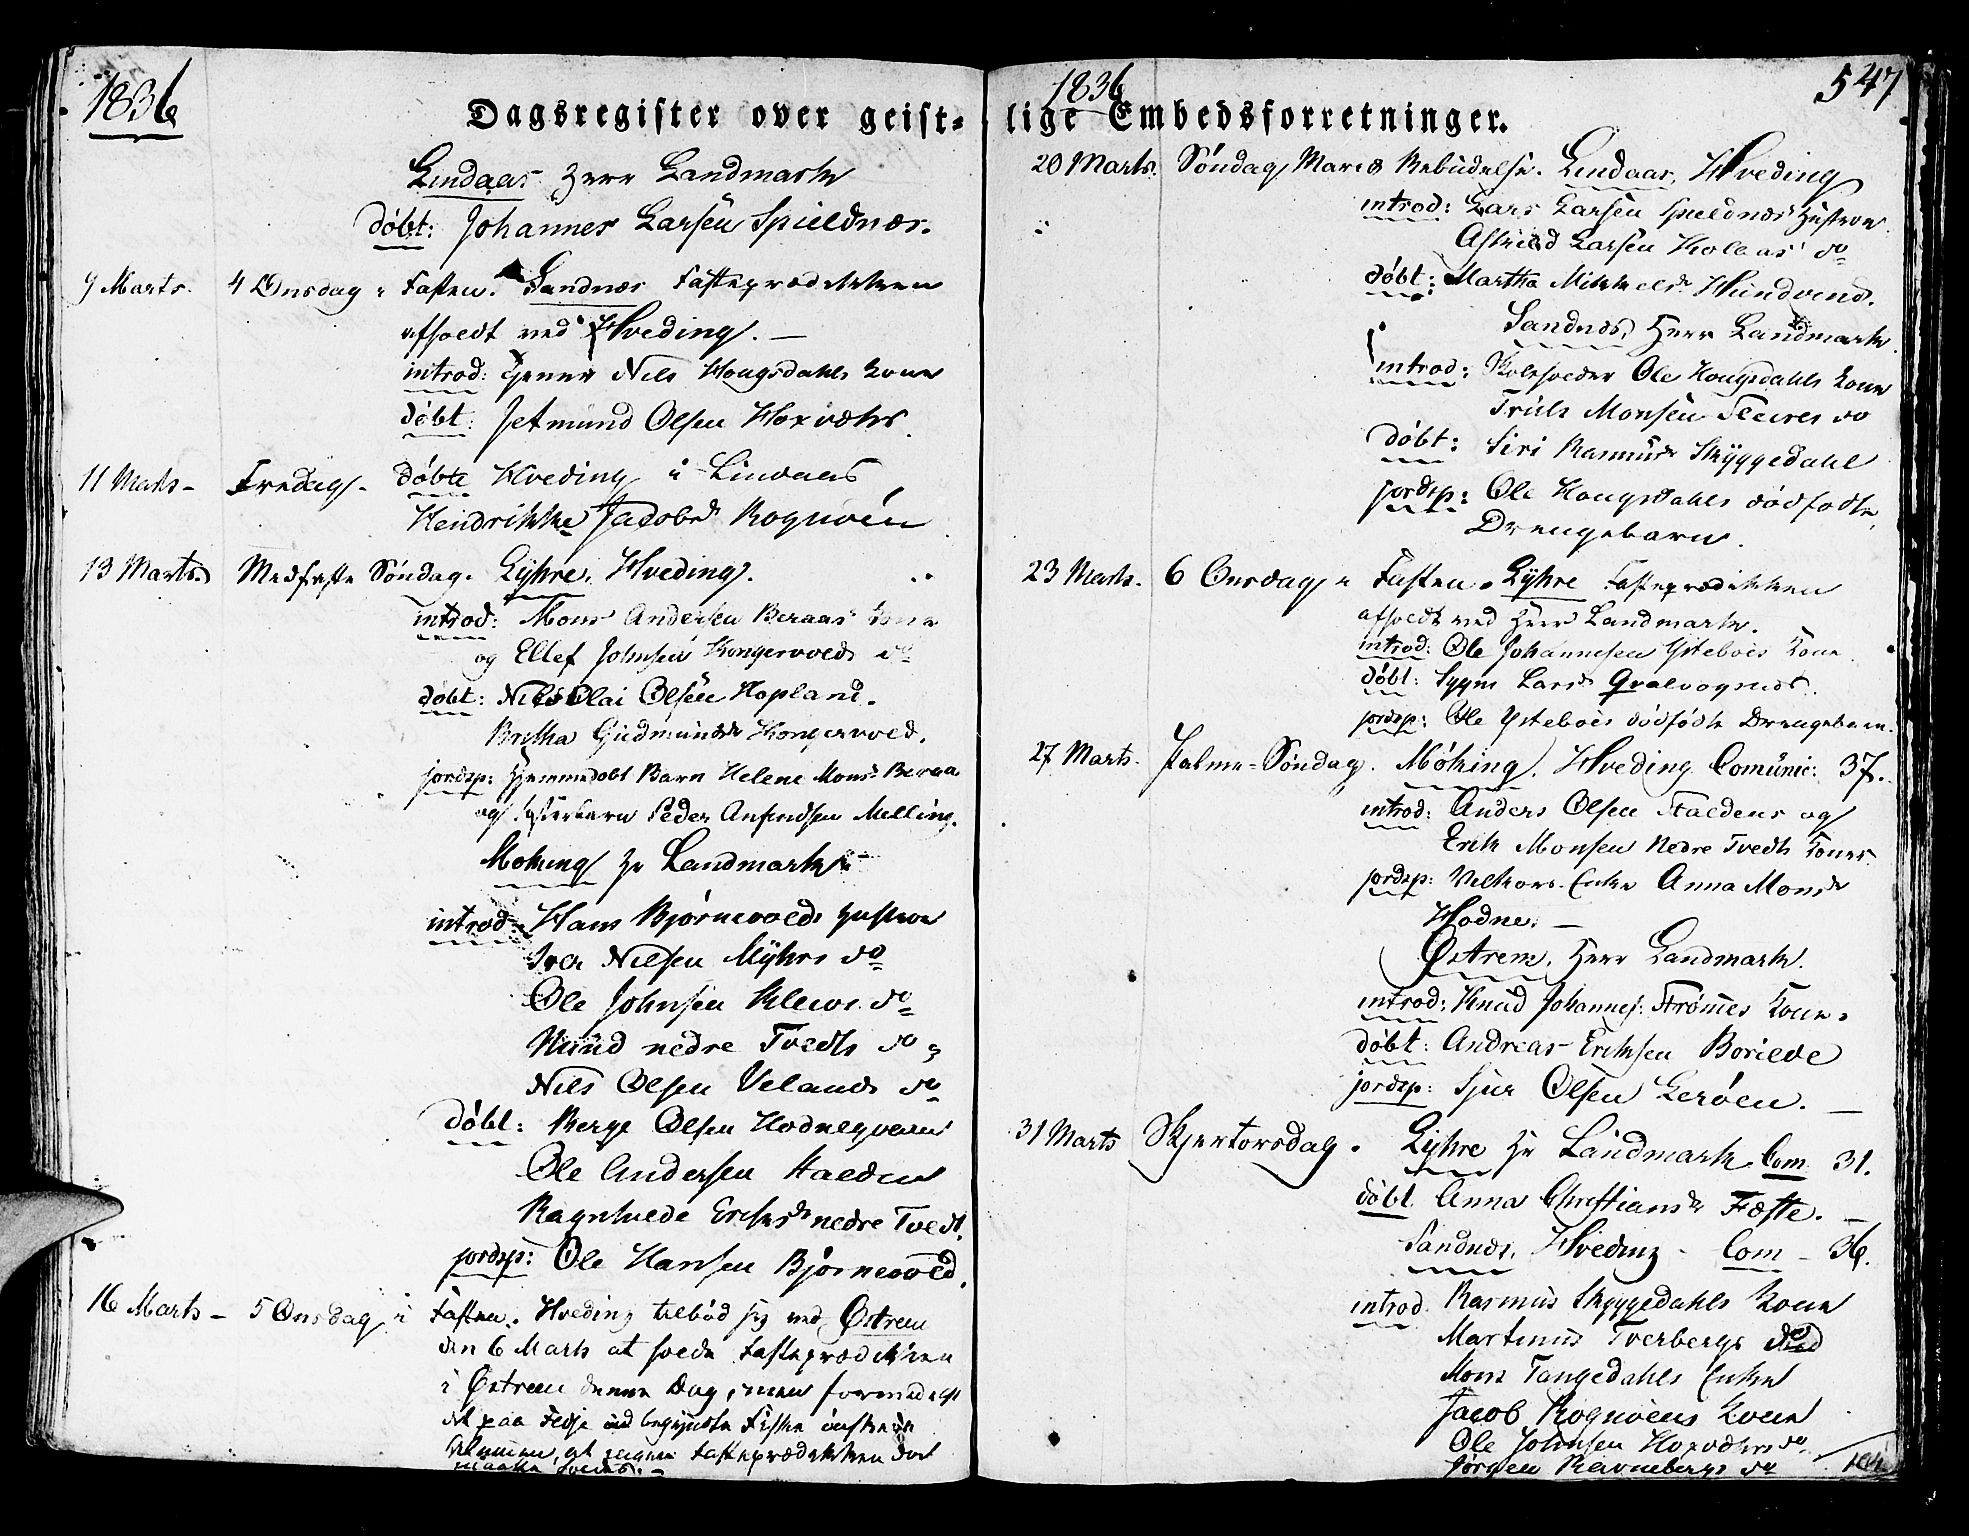 1836
Dagsregister over geist-
Lindaas Herr Landmark
döbt: Johannes Larsen Spieldnæs.
9 Marts. 4 Onsdag i Fasten. Sandnæs Fasteprædikken
afholdt ved Hveding. —
introd: Nils Hougsdahls Kone
döbt: Jetmund Olsen Hoxvohrs
11 Marts - Fredag - döbte Hveding i Lindaas
Hendrikke Jacobsd. Rognöen
13 Marts. Medfaste Söndag. Lyhre, Hveding.
introd: Mons Andersen Beraas Kone
og Ellef Johnsen Kongervolds do
döbt: Nils Olai Olsen Hopland.
Bretha Gudmundsdr Kongervold.
jordsp: hjemmedöbt Barn Helene Monsd. Beraa
og Peder Anfindsen Melling.
Möking Hr Landmark
introd: Hans Björnevolds Hustroe
Iver Nilsen Myhrs do
Ole Johnsen Kleivs do
Knud nedre Tvedts do
Nils Olsen Velands do
döbt: Berge Olsen Hodneqvam
Ole Andersen Stalden
Ragnhilde Eriksdr nedre Tvedt.
jordsp: Ole Hansen Björnevold.
16 Marts - 5 Onsdag i Fasten. Hveding tilböd sig ved Östrem
den 6 Marts at holde Fasteprædikken
i Östrem denne Dag, men formedelst
det paa Fedje begyndte Fiske önskede
Almuen, at ingen Fasteprædikken dér
maatte holdes. —
1836
547
lige Embedsforretninger.
20 Marts. Söndag Mariæ Bebudelse. Lindaas, Hveding
introd: Lars Larsen Spieldnæs Hustroe
Astried Larsen Kolaas do
döbt: Martha Mikkelsd. Hundvend.
Sandnæs, Herr Landmark
introd: Skoleholder Ole Hougsdahls Kone
Truls Monsen Fleires do
döbt: Siri Rasmusd. Skyggedahl
jordsp: Ole Hougsdahls dödfödte
Drengebarn.
23 Marts. 6 Onsdag i Fasten. Lyhre Fasteprædikken
afholdt ved Herr Landmark.
introd: Ole Johannesen Ysteböes Kone
döbt: Lars Qvalvognæs.
jordsp: Ole Ysteböes dödfödte Drengebarn.
27 Marts. Palme-Söndag. Möking, Hveding Comunic: 37.
introd: Anders Olsen Staldens og
Erik Monsen Nedre Tvedts Koner
jordsp: Enke Anna Monsdr
Hodne. —
Östrem, Herr Landmark.
introd: Knud Johannes: Strömes Kone.
döbt: Andreas Eriksen Borilde
jordsp: Sjur Olsen Leröen. —
31 Marts Skjertorsdag. Lyhre Hr Landmark Com 31.
döbt Anna Christiansdr Fæste. —
Sandnæs, Hveding - Com - 36.
introd Rasmus Skyggedahls Kone
Martinus Tverbergs do
Mons Tangedahls Enke
Jacob Rognöens Kone
Ole Johnsen Hoxvohrs do
Jörgen Ravnebergs do